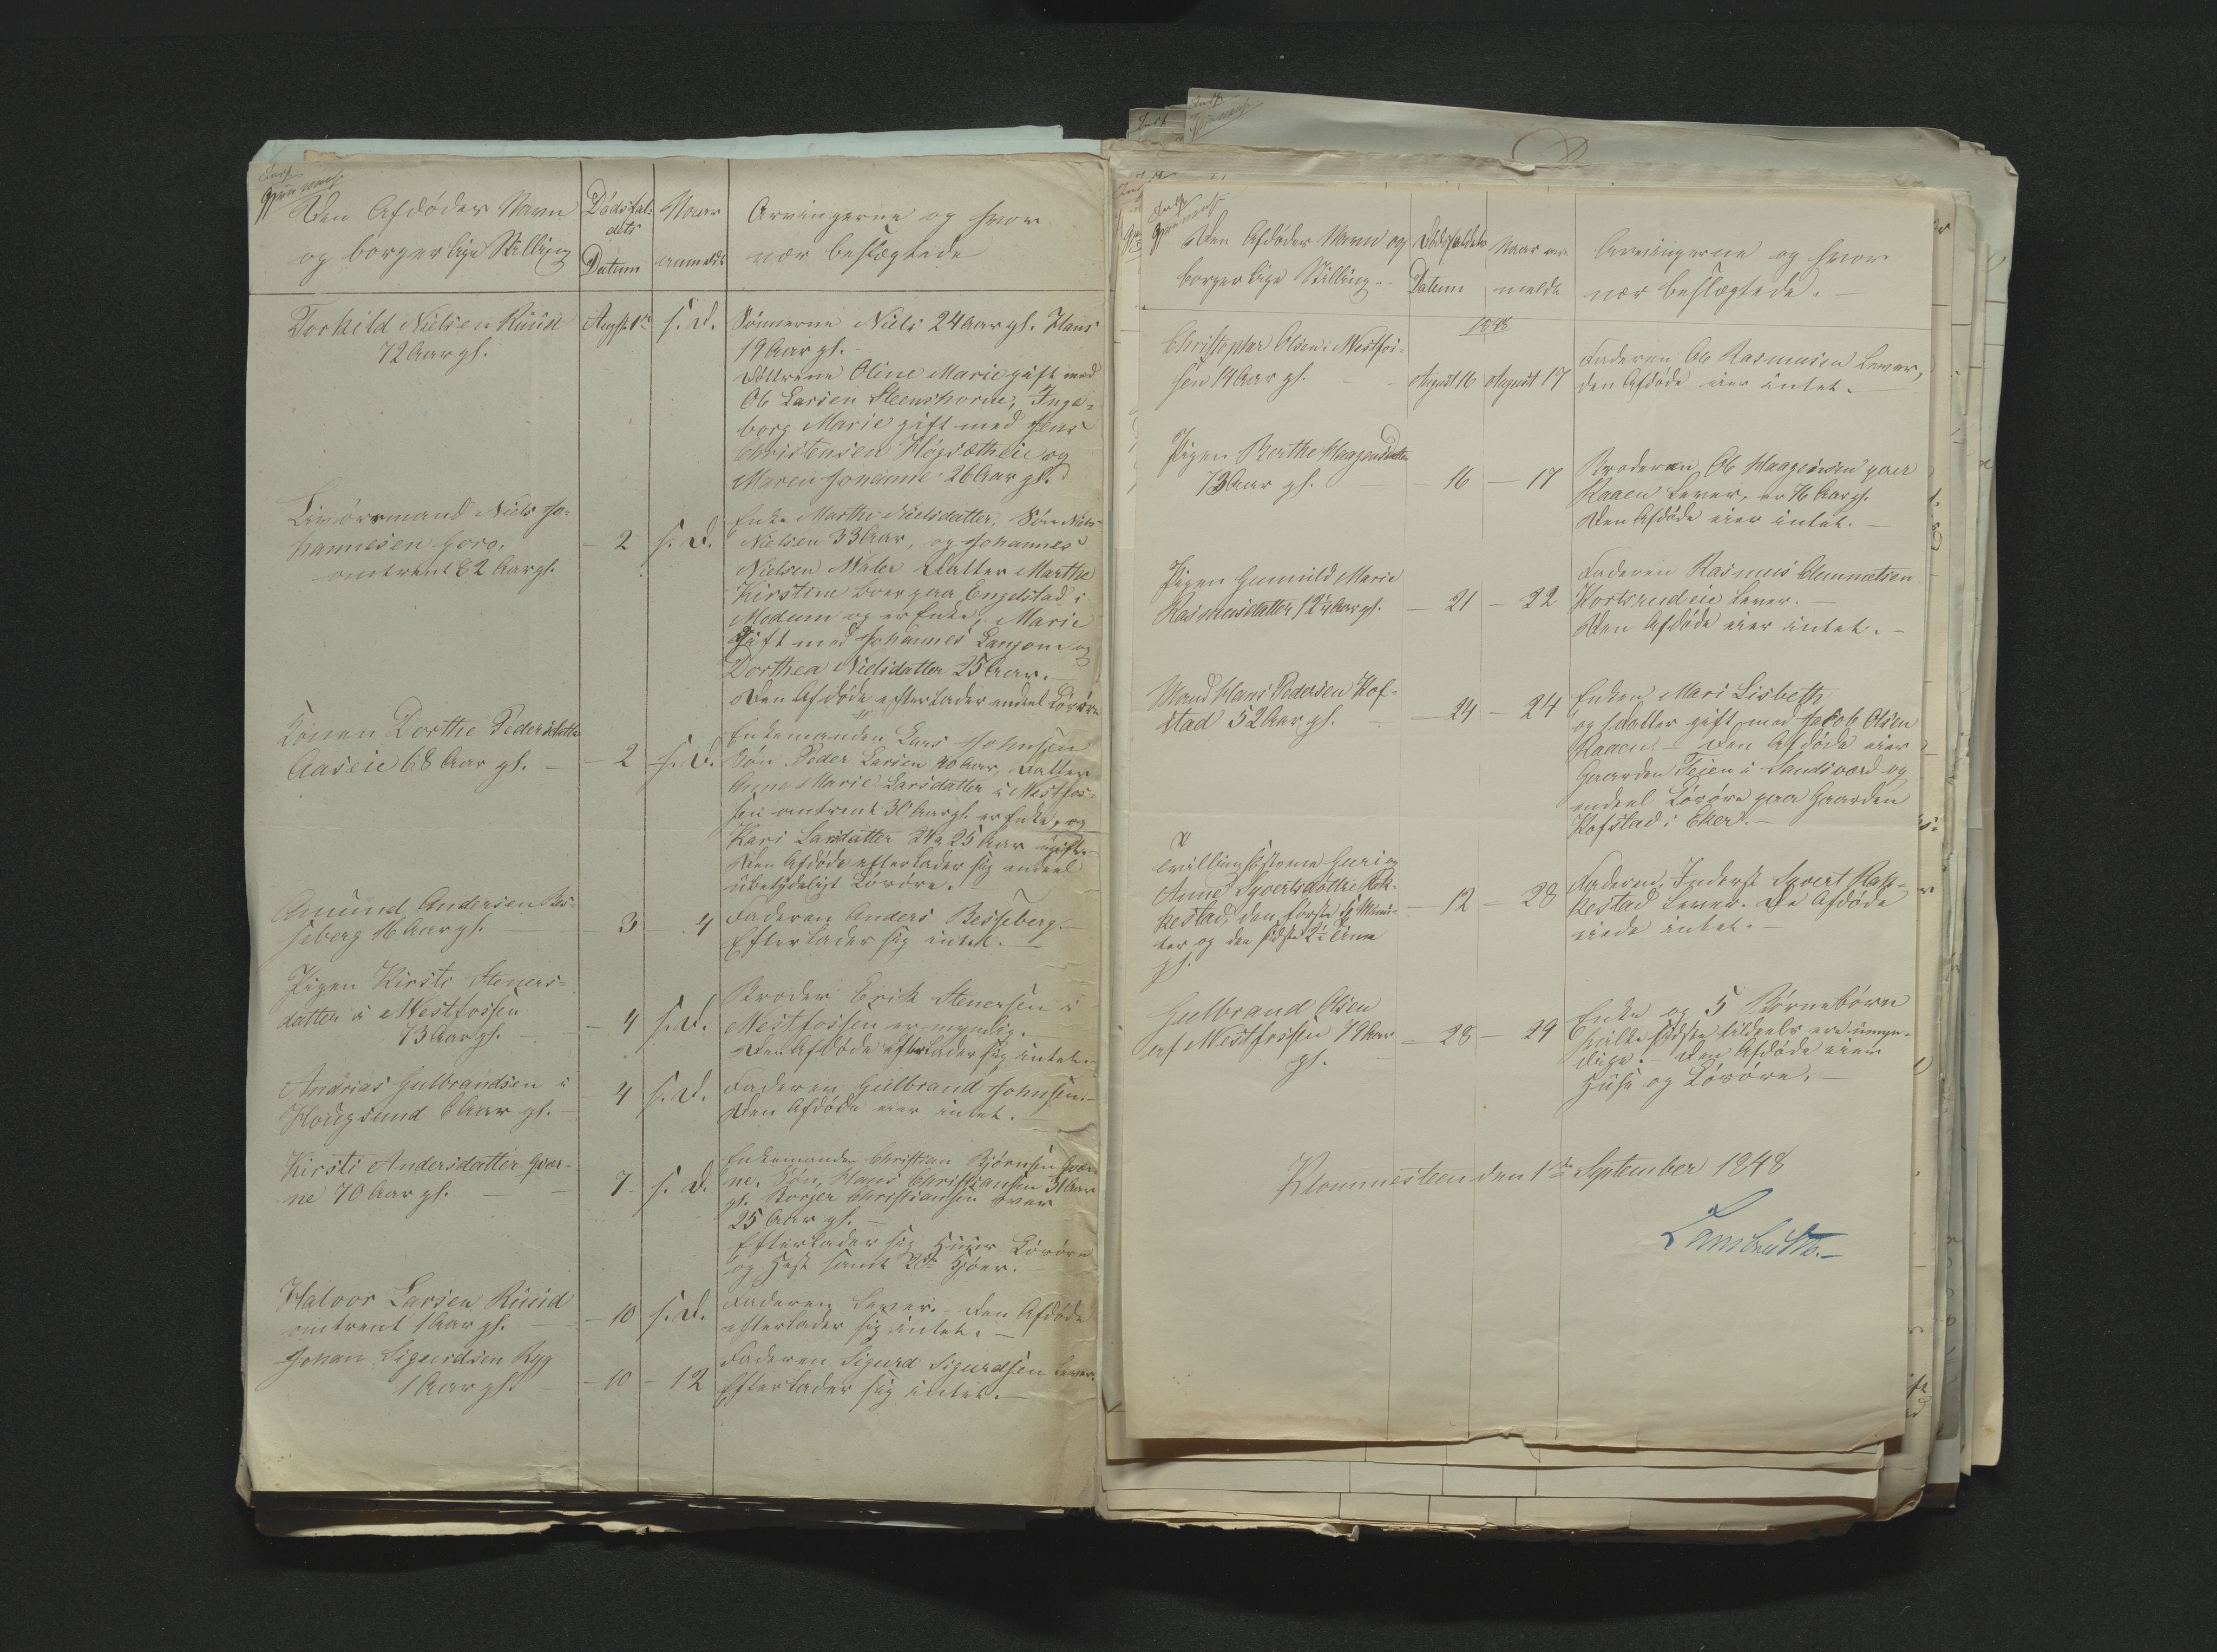 Den Afdødes Navn
og borgerlige Stilling
Dødsfal-
dets
Datum
Naar
anmeldt
Arvingerne og hvor
nær beslægtede
Torkild Nielsen Ruud
72 Aar gl.
Augst. 1ste
s. D.
Sønnerne Niels 24 Aar gl. Hans
19 Aar gl.
Døttrene Oline Marie gift med
Ole Larsen Steenshorne, Inge-
borg Marie gift med Jens
Christensen Høgsætheie og
Maren Johanne 26 Aar gl.
Niels Jo-
hannesen Horo,
omtrent 82 Aar gl.
- 2
s. D.
Enke Marthe Nielsdatter, Søn Niels
Nielsen 33 Aar, og Johannes
Nielsen Maler Datter Marthe
Kirstine boer paa Engelstad i
Modum og er Enke, Marie
Gift med Johannes Langom og
Dorthea Nielsdatter 25 Aar.
Den Afdøde efterlader endeel Løsøre
Konen Dorthe Pedersdatter
Aaseie 68 Aar gl. -
- 2
s. D.
Enkemanden Lars Johnsen
Søn Peder Larsen 40 Aar, Datter
Anne Marie Larsdatter i Westfos-
sen omtrent 30 Aar gl. er Enke, og
Kari Larsdatter 24 a 25 Aar ugift.
Den Afdøde efterlader sig endeel
ubetydeligt Løsøre.
Amund Andersen Bes-
seberg 16 Aar gl.
3
4
Faderen Anders Besseberg. -
Efterlader sig intet. -
Pigen Kirsti Steners-
datter i Westfossen
73 Aar gl.
- 4
s. D.
Broder Erik Stenersen i
Westfossen er myndig.
Den Afdøde efterlader sig intet. -
Andrias Gulbrandsen i
Hougsund 6 Aar gl. -
4
s. D.
Faderen Gulbrand Johnsen. -
Den Afdøde eier intet.
Kirsti Andersdatter Hvær-
ne 70 Aar gl. -
7
s. D.
Enkemanden Christian Bjørnsen Hvær-
ne. Søn, Hans Christiansen 31 Aar
gl. Borger Christiansen over
25 Aar gl. -
Efterlader sig Huus Løsøre
og Hest samt 2de Kjøer.
Halvor Larsen Ruud
omtrent 1 Aar gl. -
- 10
s. D.
Faderen lever. - Den Afdøde
efterlader sig intet. -
Johan Sigurdsen Ryg
1 Aar gl.
- 10
- 12
Faderen Sigurd Sigurdsen lever.
Efterlader sig intet. -
Den Afdødes Navn og
borgerlige Stilling. -
Dødsfaldets
Datum
Naar an-
meldt
Arvingerne og hvor
nær beslægtede. -
1848
Christopher Olsen Westfos-
sen 14 Aar gl. -
August 16
August 17
Faderen Ole Rasmusen lever,
den Afdøde eier intet. -
Pigen Berthe Haagensdatter
73 Aar gl. -
- 16
- 17
Broderen Ole Haagensen paa
Kaaen lever, er 76 Aar gl.
Den Afdøde eier intet. -
Pigen Gunnild Marie
Rasmusdatter 12 1/4 Aar gl.
- 21
- 22
Faderen Rasmus Clemmetsen
lever. -
Den Afdøde eier intet. -
Mand Hans Pedersen Hof-
stad 52 Aar gl. -
- 24
- 24
Enken Mari Lisbeth
og 1 datter gift med Jacob Olsen
Kaaen. - Den Afdøde eier
Gaarden Teien i Sandsværd og
endeel Løsøre paa Gaarden
Hofstad i Eker. -
Tvillingsøstrene Guri og
Anne Syvertsdøttre Rak-
kestad, den første 15 Minut-
ter og den sidste 2 1/2 Time
gl.
- 12
- 28
Faderen, Inderst Syvert Rak-
kestad lever. De Afdøde
eiede intet. -
Gulbrand Olsen
af Westfossen 79 Aar
gl.
- 28
- 29
Enke og 5 Børnebørn
hvilke sidste tildeels ere umyn-
dige. - Den Afdøde eier
Huse og Løsøre. -
Klommesteen den 1ste September 1848